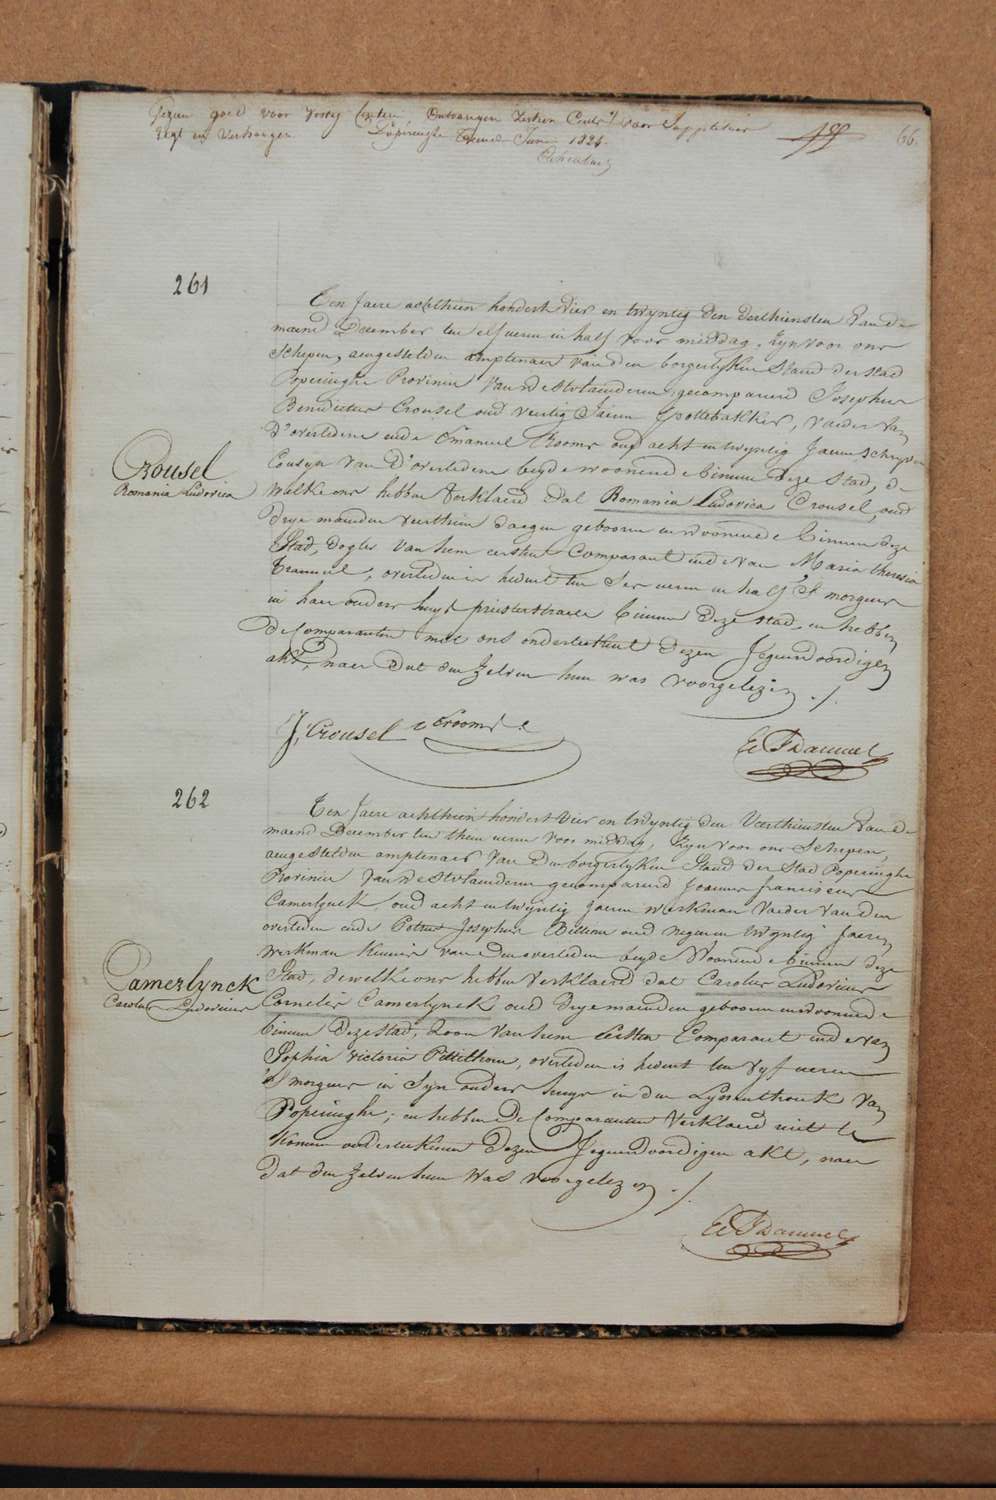 Gezien goed voor veertig Centen, Ontvangen Zestien Cents voor Suppletoir
Zegt en Verhoogen Poperinghe Junij 1824.
66.
261
Ten Jaere achthien hondert vier en twyntig den derthiensten van de
maend December ten elf ueren en half voor middag, Zyn voor ons
Schepen, aengestelden amptenaer van den borgerlyken Stand der Stad
Poperinghe Provincie van Westvlaenderen, gecompareerd Josephus
Benedictus Crousel oud veertig Jaeren Pottebakker, vaeder van
d'overledene ende Emanuel Rooms oud acht en twyntig Jaeren schryver
Cousyn van d'overledene beyde woonende binnen deze Stad, de
welke ons hebben verklaerd dat Romania Ludovica Crousel, oud
drye maenden veerthien daegen geboren en woonende binnen deze
Stad, dogter van hem eersten Comparant ende van Maria theresia
overleden is heden ten Ses ueren en half 's morgens
in haer ouders huys priesterstraete binnen deze stad, en hebben
de Comparanten met ons onderteekent dezen Jegenwoordigen
akt, naer dat den zelven hun was voorgelezen ./.
Crousel
Romania Ludovica
J, Crousel E Rooms
262
Ten Jaere achthien hondert vier en twyntig den Veerthiensten van de
maend December ten thien ueren voor middag, Zyn voor ons Schepen,
aengestelden amptenaer van den borgerlyken Stand der Stad Poperinghe
Provincie van Westvlaenderen gecompareerd Joannes franciscus
Camerlynck oud acht en twyntig Jaeren werkman Vaeder van den
overleden ende Petrus Josephus oud negen en twyntig Jaeren
werkman Kennis van den overleden beyde Woonende binnen deze
Stad, dewelke ons hebben Verklaerd dat Carolus Ludovicus
Cornelis Camerlynck oud drye maenden geboren en woonende
binnen deze stad, Zoon van hem Eersten Comparant ende van
Sophia Victoria overleden is heden ten vyf ueren
's morgens in Syn ouders huys in den Lyssenthoek van
Poperinghe, en hebben de Comparanten Verklaerd niet te
Konnen onderteekenen dezen Jegenwoordigen akt, naer
dat den zelven hun Was voorgelezen ./.
Camerlynck
Carolus Ludovicus